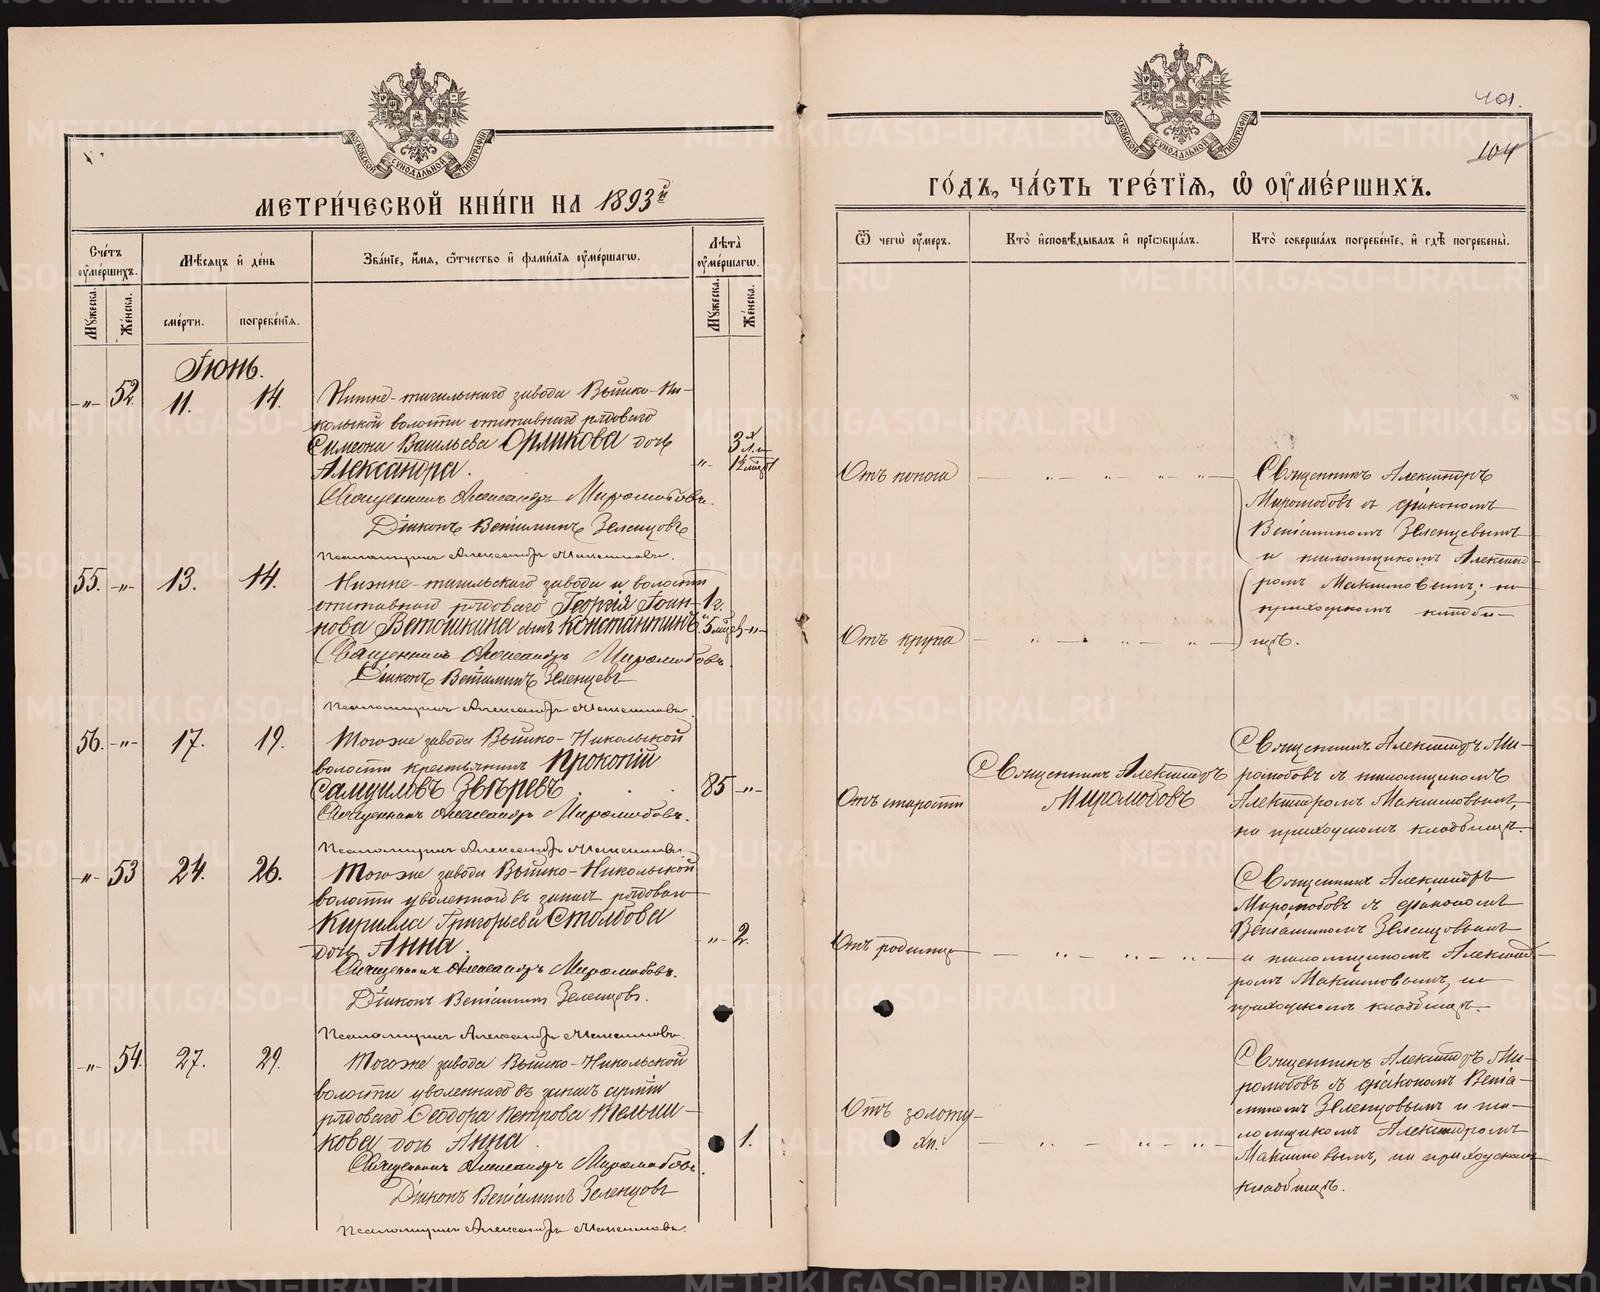 МЕТРИ́ЧЕСКОЙ КНИ́ГИ НА 1893й
Сче́тъ ᲂу҆ме́ршихъ.
Мꙋ́жеска.
Же́нска.
Мѣ́сяцъ и҆ де́нь
сме́рти.
погребе́нїя.
Зва́нїе, и҆́мя, ѻ҆́тчество и҆ фами́лїя ᲂу҆ме́ршагѡ.
Лѣ́та ᲂу҆ме́ршагѡ.
Мꙋ́жеска.
Же́нска.
Іюнь.
-„- 52. 11. 14.
Нижне-тагильскаго завода Выйско-Ни-
кольской волости отставнаго рядоваго
Симеона Васильева Орликова дочь
Александра.
„ 3 л. 1½ мѣс.
Священникъ Александръ Миролюбовъ.
Діаконъ Веніаминъ Зеленцовъ
Псаломщикъ Александръ Максимовъ.
55. -„- 13. 14.
Нижне-тагильскаго завода и волости
отставнаго рядоваго Георгія Іоан-
нова Ветошкина сынъ Константинъ
1 г. 5 мѣс. -„-
Священникъ Александръ Миролюбовъ
Діаконъ Веніаминъ Зеленцовъ
Псаломщикъ Александръ Максимовъ.
56. -„- 17. 19.
Тогоже завода Выйско-Никольской
волости крестьянинъ Прокопій
Самуиловъ Звѣревъ.
85 -„-
Священникъ Александръ Миролюбовъ.
Псаломщикъ Александръ Максимовъ
-„- 53 24. 26.
Тогоже завода Выйско-Никольской
волости уволеннаго въ запасъ рядоваго
Кирилла Григорьева Столбова
дочь Анна.
„ 2.
Священникъ Александръ Миролюбовъ.
Діаконъ Веніаминъ Зеленцовъ.
Псаломщикъ Александръ Максимовъ.
-„- 54. 27. 29.
Тогоже завода Выйско-Никольской
волости уволеннаго въ запасъ арміи
рядоваго Ѳеодора Петрова Мельни-
кова дочь Анна.
1.
Священникъ Александръ Миролюбовъ.
Діаконъ Веніаминъ Зеленцовъ
Псаломщикъ Александръ Максимовъ.
401.
104
ГО́ДЪ, ЧА́СТЬ ТРЕ́ТЇѦ, Ѡ҆ ᲂУ҆МЕ́РШИХЪ.
Ѿ чегѡ̀ ᲂу҆́меръ.
Кто̀ и҆сповѣ́дывалъ и҆ прїѻбща́лъ.
Кто̀ соверша́лъ погребе́нїе, и҆ гдѣ̀ погребены̀.
Отъ поноса
Священникъ Александръ
Миролюбовъ съ діакономъ
Веніаминомъ Зеленцовымъ
и псаломщикомъ Александ-
ромъ Максимовымъ, на
приходскомъ кладби-
щѣ.
Отъ крупа
Отъ старости
Священникъ Александръ
Миролюбовъ
Священникъ Александръ Ми-
ролюбовъ съ псаломщикомъ
Александромъ Максимовымъ,
на приходскомъ кладбищѣ.
Отъ родимца
Священникъ Александръ
Миролюбовъ съ діакономъ
Веніаминомъ Зеленцовымъ
и псаломщикомъ Александ-
ромъ Максимовымъ, на
приходскомъ кладбищѣ.
Отъ золоту-
хи.
Священникъ Александръ Ми-
ролюбовъ съ діакономъ Веніа-
миномъ Зеленцовымъ и пса-
ломщикомъ Александромъ
Максимовымъ, на приходскомъ
кладбищѣ.
METRIKI.GASO-URAL.RU